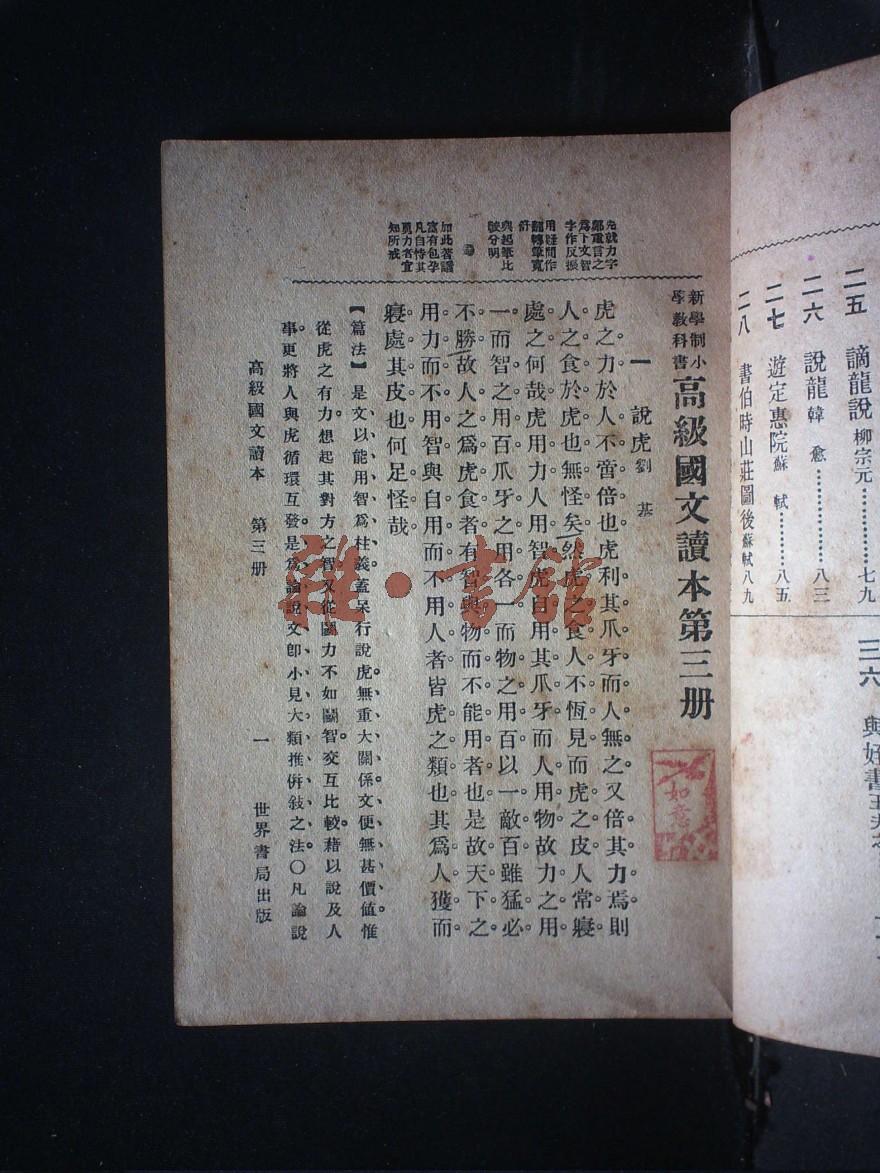 新學制小學教科書 高級國文讀本第三册
一　說虎 劉基
虎之力於人不啻倍也虎利其爪牙而人無之又倍其力焉則
人之食於虎也無怪矣然虎之食人不恆見而虎之皮人常寢
處之何哉虎用力人用智虎自用其爪牙而人用物故力之用
一而智之用百爪牙之用各一而物之用百以一敵百雖猛必
不勝故人之爲虎食者有智與物而不能用者也是故天下之
用力而不用智與自用而不用人者皆虎之類也其爲人獲而
寢處其皮也何足怪哉
【篇法】是文以能用智爲柱義蓋呆行說虎無重大關係文便無甚價値惟
從虎之有力想起其對方之智又從鬭力不如鬭智交互比較藉以說及人
事更將人與虎循環互發是爲論說文卽小見大類推倂敍之法〇凡論說
高級國文讀本　第三册　一　世界書局出版
先就力字
鄭重言之
爲下文智
字作反振
用疑問作
翻轉筆寬
與起筆比
較分明
如此著議
富有包孕
凡自恃其
勇力者宜
知所戒
二五　謫龍說 柳宗元 七九
二六　說龍 韓愈 八三
二七　遊定惠院 蘇軾 八五
二八　書伯時山莊圖後 蘇軾 八九
三六
與姪書
如意
雜·書館